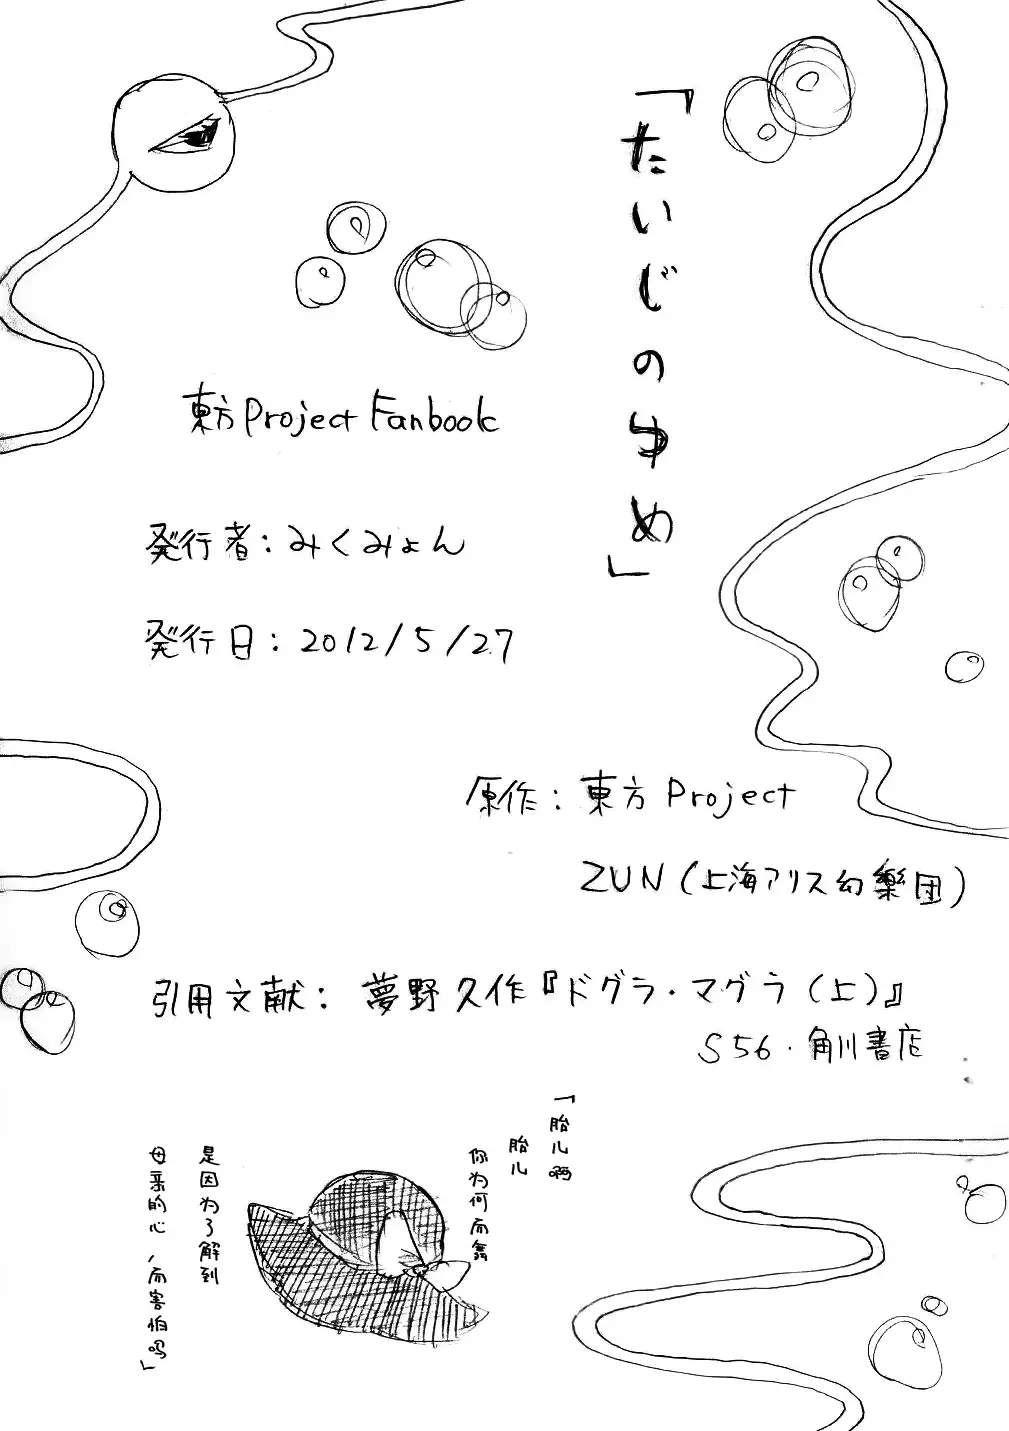 「たいじのゆめ」
東方Project Fanbook
発行者：みくみょん
発行日：2012/5/27
原作：東方Project
ZUN（上海アリス幻樂団）
引用文献：夢野久作『ドグラ・マグラ（上）』
S56・角川書店
「胎儿啊
胎儿
你为何而舞
是因为了解到
母亲的心，而害怕吗」